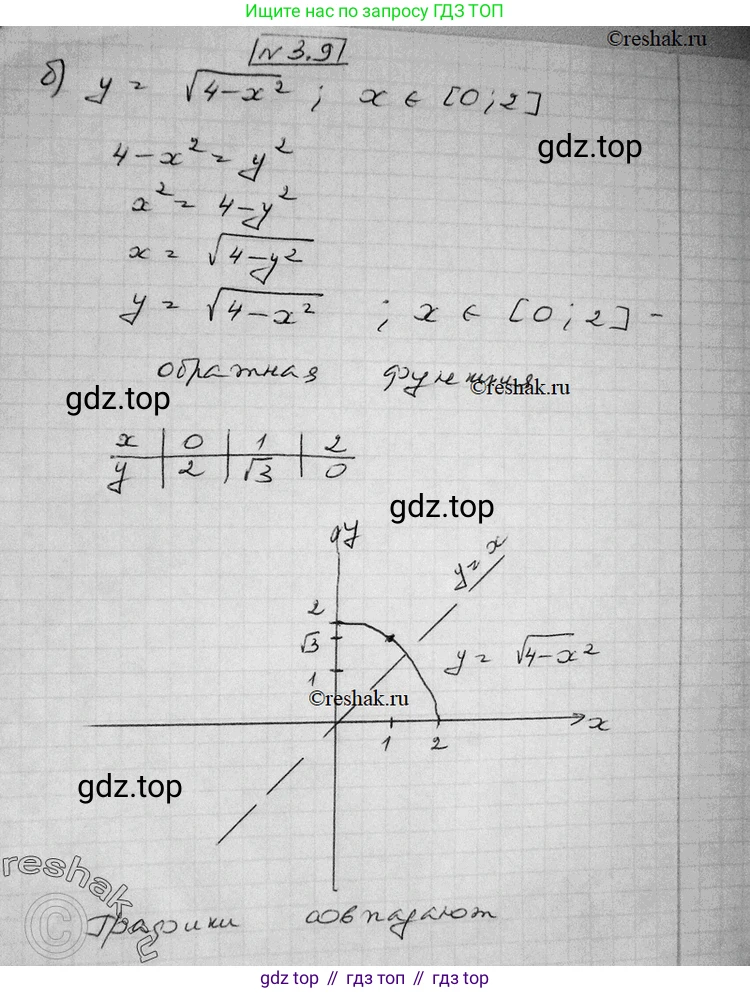 Ищите нас по запросу ГДЗ ТОП
©reshak.ru
N 3.9
б) y = √(4-x²) ; x ∈ [0;2]
gdz.top
4-x² = y²
x² = 4-y²
x = √(4-y²)
y = √(4-x²) ; x ∈ [0;2] -
обратная функция
©reshak.ru
gdz.top
x | 0 | 1 | 2
y | 2 | √3 | 0
gdz.top
y
y = x
2
√3
y = √(4-x²)
1
©reshak.ru
1 2 x
gdz.top
reshak.ru
©
Графики совпадают
gdz top // гдз топ // gdz top